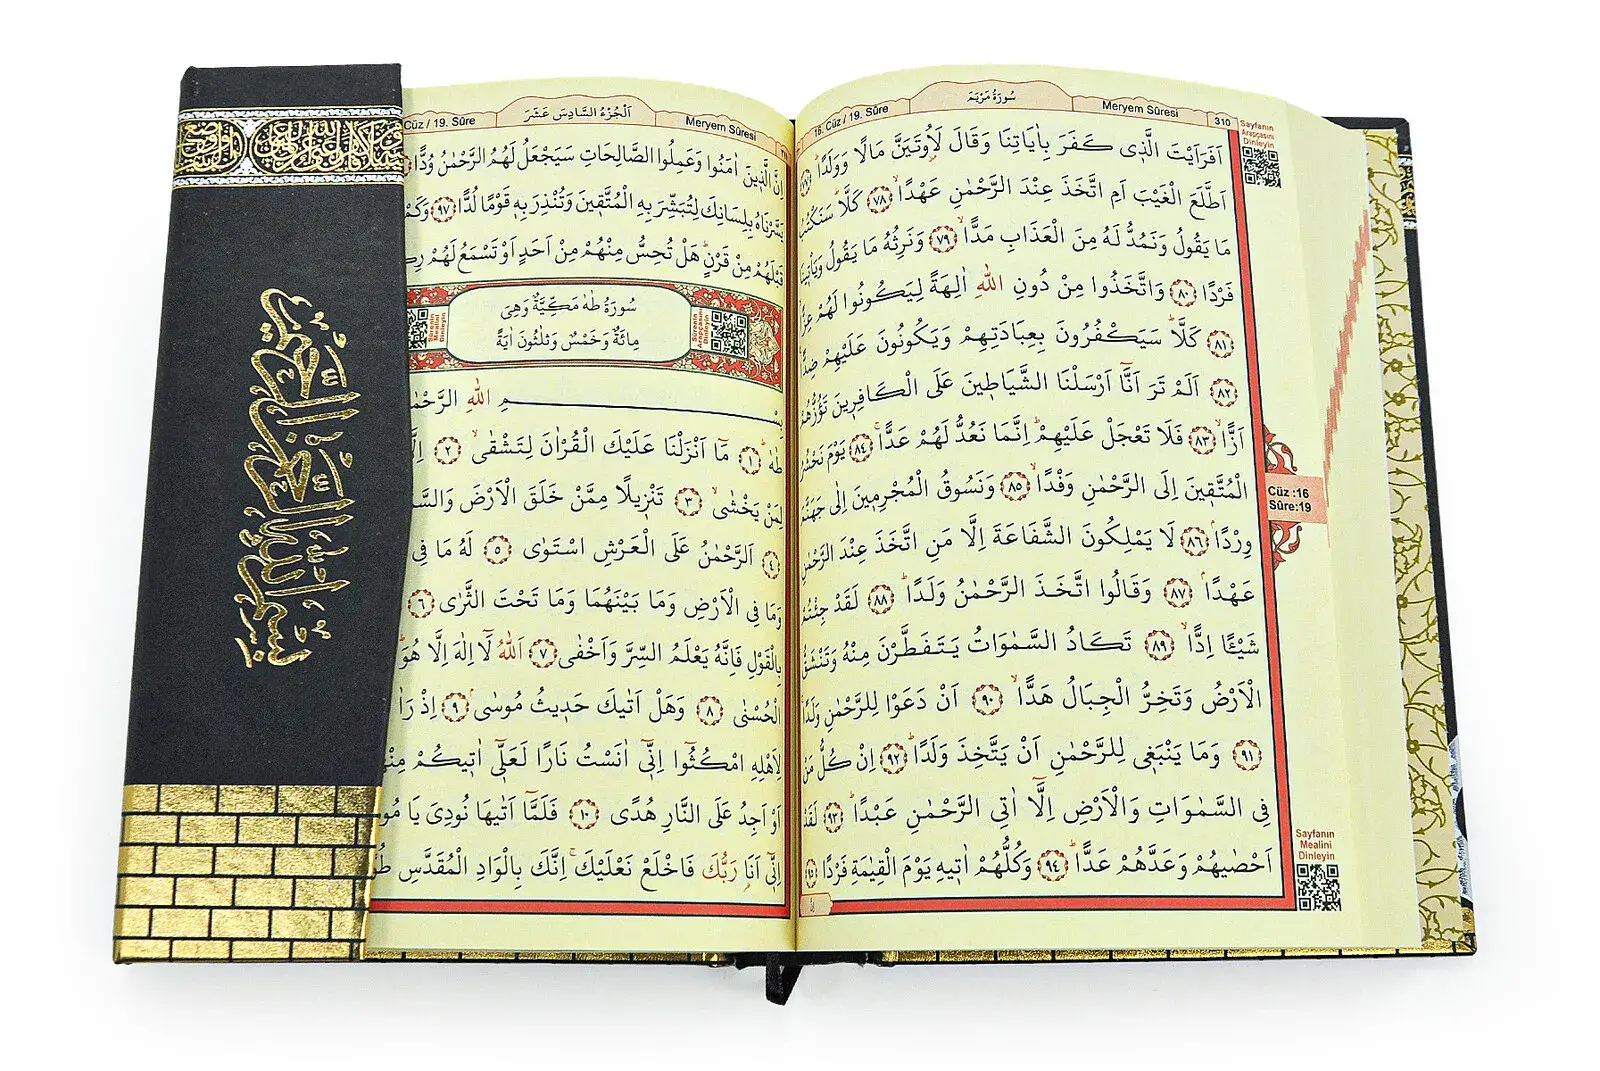 سُورَةُ مَرْيَمَ
16. Cüz / 19. Sûre
Meryem Sûresi
310
Sayfanın
Arapçasını
Dinleyin
اَفَرَاَيْتَ الَّذ۪ي كَفَرَ بِاٰيَاتِنَا وَقَالَ لَاُو۫تَيَنَّ مَالًا وَوَلَدًاۜ ﴿٧٧﴾
اَطَّلَعَ الْغَيْبَ اَمِ اتَّخَذَ عِنْدَ الرَّحْمٰنِ عَهْدًاۙ ﴿٧٨﴾ كَلَّاۜ سَنَكْتُبُ
مَا يَقُولُ وَنَمُدُّ لَهُ مِنَ الْعَذَابِ مَدًّاۙ ﴿٧٩﴾ وَنَرِثُهُ مَا يَقُولُ وَيَأْت۪ينَا
فَرْدًا ﴿٨٠﴾ وَاتَّخَذُوا مِنْ دُونِ اللّٰهِ اٰلِهَةً لِيَكُونُوا لَهُمْ عِزًّا
﴿٨١﴾ كَلَّاۜ سَيَكْفُرُونَ بِعِبَادَتِهِمْ وَيَكُونُونَ عَلَيْهِمْ ضِدًّا
﴿٨٢﴾ اَلَمْ تَرَ اَنَّٓا اَرْسَلْنَا الشَّيَاط۪ينَ عَلَى الْكَافِر۪ينَ تَؤُزُّهُمْ
اَزًّاۙ ﴿٨٣﴾ فَلَا تَعْجَلْ عَلَيْهِمْۜ اِنَّمَا نَعُدُّ لَهُمْ عَدًّاۚ ﴿٨٤﴾ يَوْمَ نَحْشُرُ
الْمُتَّق۪ينَ اِلَى الرَّحْمٰنِ وَفْدًاۙ ﴿٨٥﴾ وَنَسُوقُ الْمُجْرِم۪ينَ اِلٰى جَهَنَّمَ
وِرْدًاۢ ﴿٨٦﴾ لَا يَمْلِكُونَ الشَّفَاعَةَ اِلَّا مَنِ اتَّخَذَ عِنْدَ الرَّحْمٰنِ
عَهْدًاۢ ﴿٨٧﴾ وَقَالُوا اتَّخَذَ الرَّحْمٰنُ وَلَدًاۜ ﴿٨٨﴾ لَقَدْ جِئْتُمْ
شَيْـًٔا اِدًّاۙ ﴿٨٩﴾ تَكَادُ السَّمٰوَاتُ يَتَفَطَّرْنَ مِنْهُ وَتَنْشَقُّ
الْاَرْضُ وَتَخِرُّ الْجِبَالُ هَدًّاۙ ﴿٩٠﴾ اَنْ دَعَوْا لِلرَّحْمٰنِ وَلَدًاۚ
﴿٩١﴾ وَمَا يَنْبَغ۪ي لِلرَّحْمٰنِ اَنْ يَتَّخِذَ وَلَدًاۜ ﴿٩٢﴾ اِنْ كُلُّ مَنْ
فِي السَّمٰوَاتِ وَالْاَرْضِ اِلَّٓا اٰتِي الرَّحْمٰنِ عَبْدًاۜ ﴿٩٣﴾ لَقَدْ
اَحْصٰيهُمْ وَعَدَّهُمْ عَدًّاۜ ﴿٩٤﴾ وَكُلُّهُمْ اٰت۪يهِ يَوْمَ الْقِيٰمَةِ فَرْدًا ﴿٩٥﴾
Cüz :16
Sûre:19
Sayfanın
Mealini
Dinleyin
اَلْجُزْءُ السَّادِسَ عَشَرَ
Cüz / 19. Sûre
Meryem Sûresi
اِنَّ الَّذ۪ينَ اٰمَنُوا وَعَمِلُوا الصَّالِحَاتِ سَيَجْعَلُ لَهُمُ الرَّحْمٰنُ وُدًّا
يَسَّرْنَاهُ بِلِسَانِكَ لِتُبَشِّرَ بِهِ الْمُتَّق۪ينَ وَتُنْذِرَ بِه۪ قَوْمًا لُدًّا ﴿٩٧﴾ وَكَمْ
قَبْلَهُمْ مِنْ قَرْنٍۜ هَلْ تُحِسُّ مِنْهُمْ مِنْ اَحَدٍ اَوْ تَسْمَعُ لَهُمْ رِكْ
سُورَةُ طٰهٰ مَكِّيَّةٌ وَهِيَ
مِائَةٌ وَخَمْسٌ وَثَلٰثُونَ اٰيَةً
Sûrenin
Arapçasını
Dinleyin
Sûrenin
Mealini
Dinleyin
بِسْمِ اللّٰهِ الرَّحْمٰنِ
طٰهٰۜ ﴿١﴾ مَٓا اَنْزَلْنَا عَلَيْكَ الْقُرْاٰنَ لِتَشْقٰىۙ ﴿٢﴾ اِلَّا
لِمَنْ يَخْشٰىۙ ﴿٣﴾ تَنْز۪يلًا مِمَّنْ خَلَقَ الْاَرْضَ وَالسَّ
﴿٤﴾ اَلرَّحْمٰنُ عَلَى الْعَرْشِ اسْتَوٰى ﴿٥﴾ لَهُ مَا فِي
وَمَا فِي الْاَرْضِ وَمَا بَيْنَهُمَا وَمَا تَحْتَ الثَّرٰى ﴿٦﴾
بِالْقَوْلِ فَاِنَّهُ يَعْلَمُ السِّرَّ وَاَخْفٰى ﴿٧﴾ اَللّٰهُ لَٓا اِلٰهَ اِلَّا هُوَۜ
الْحُسْنٰى ﴿٨﴾ وَهَلْ اَتٰيكَ حَد۪يثُ مُوسٰىۢ ﴿٩﴾ اِذْ رَاٰ
لِاَهْلِهِ امْكُثُٓوا اِنّ۪ٓي اٰنَسْتُ نَارًا لَعَلّ۪ٓي اٰت۪يكُمْ مِنْهَا
اَوْ اَجِدُ عَلَى النَّارِ هُدًى ﴿١٠﴾ فَلَمَّٓا اَتٰيهَا نُودِيَ يَا مُو
اِنّ۪ٓي اَنَا۬ رَبُّكَ فَاخْلَعْ نَعْلَيْكَۚ اِنَّكَ بِالْوَادِ الْمُقَدَّسِ طُ
بسم الله الرحمن الرحيم